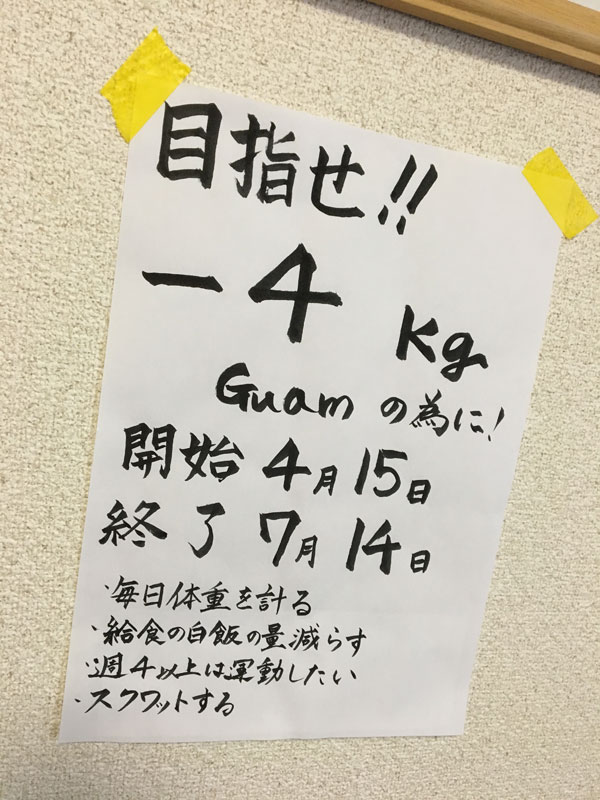 目指せ!!
-4 Kg
Guam の為に!
開始 4月15日
終了 7月14日
・毎日体重を計る
・給食の白飯の量減らす
・週4以上は運動したい
・スクワットする